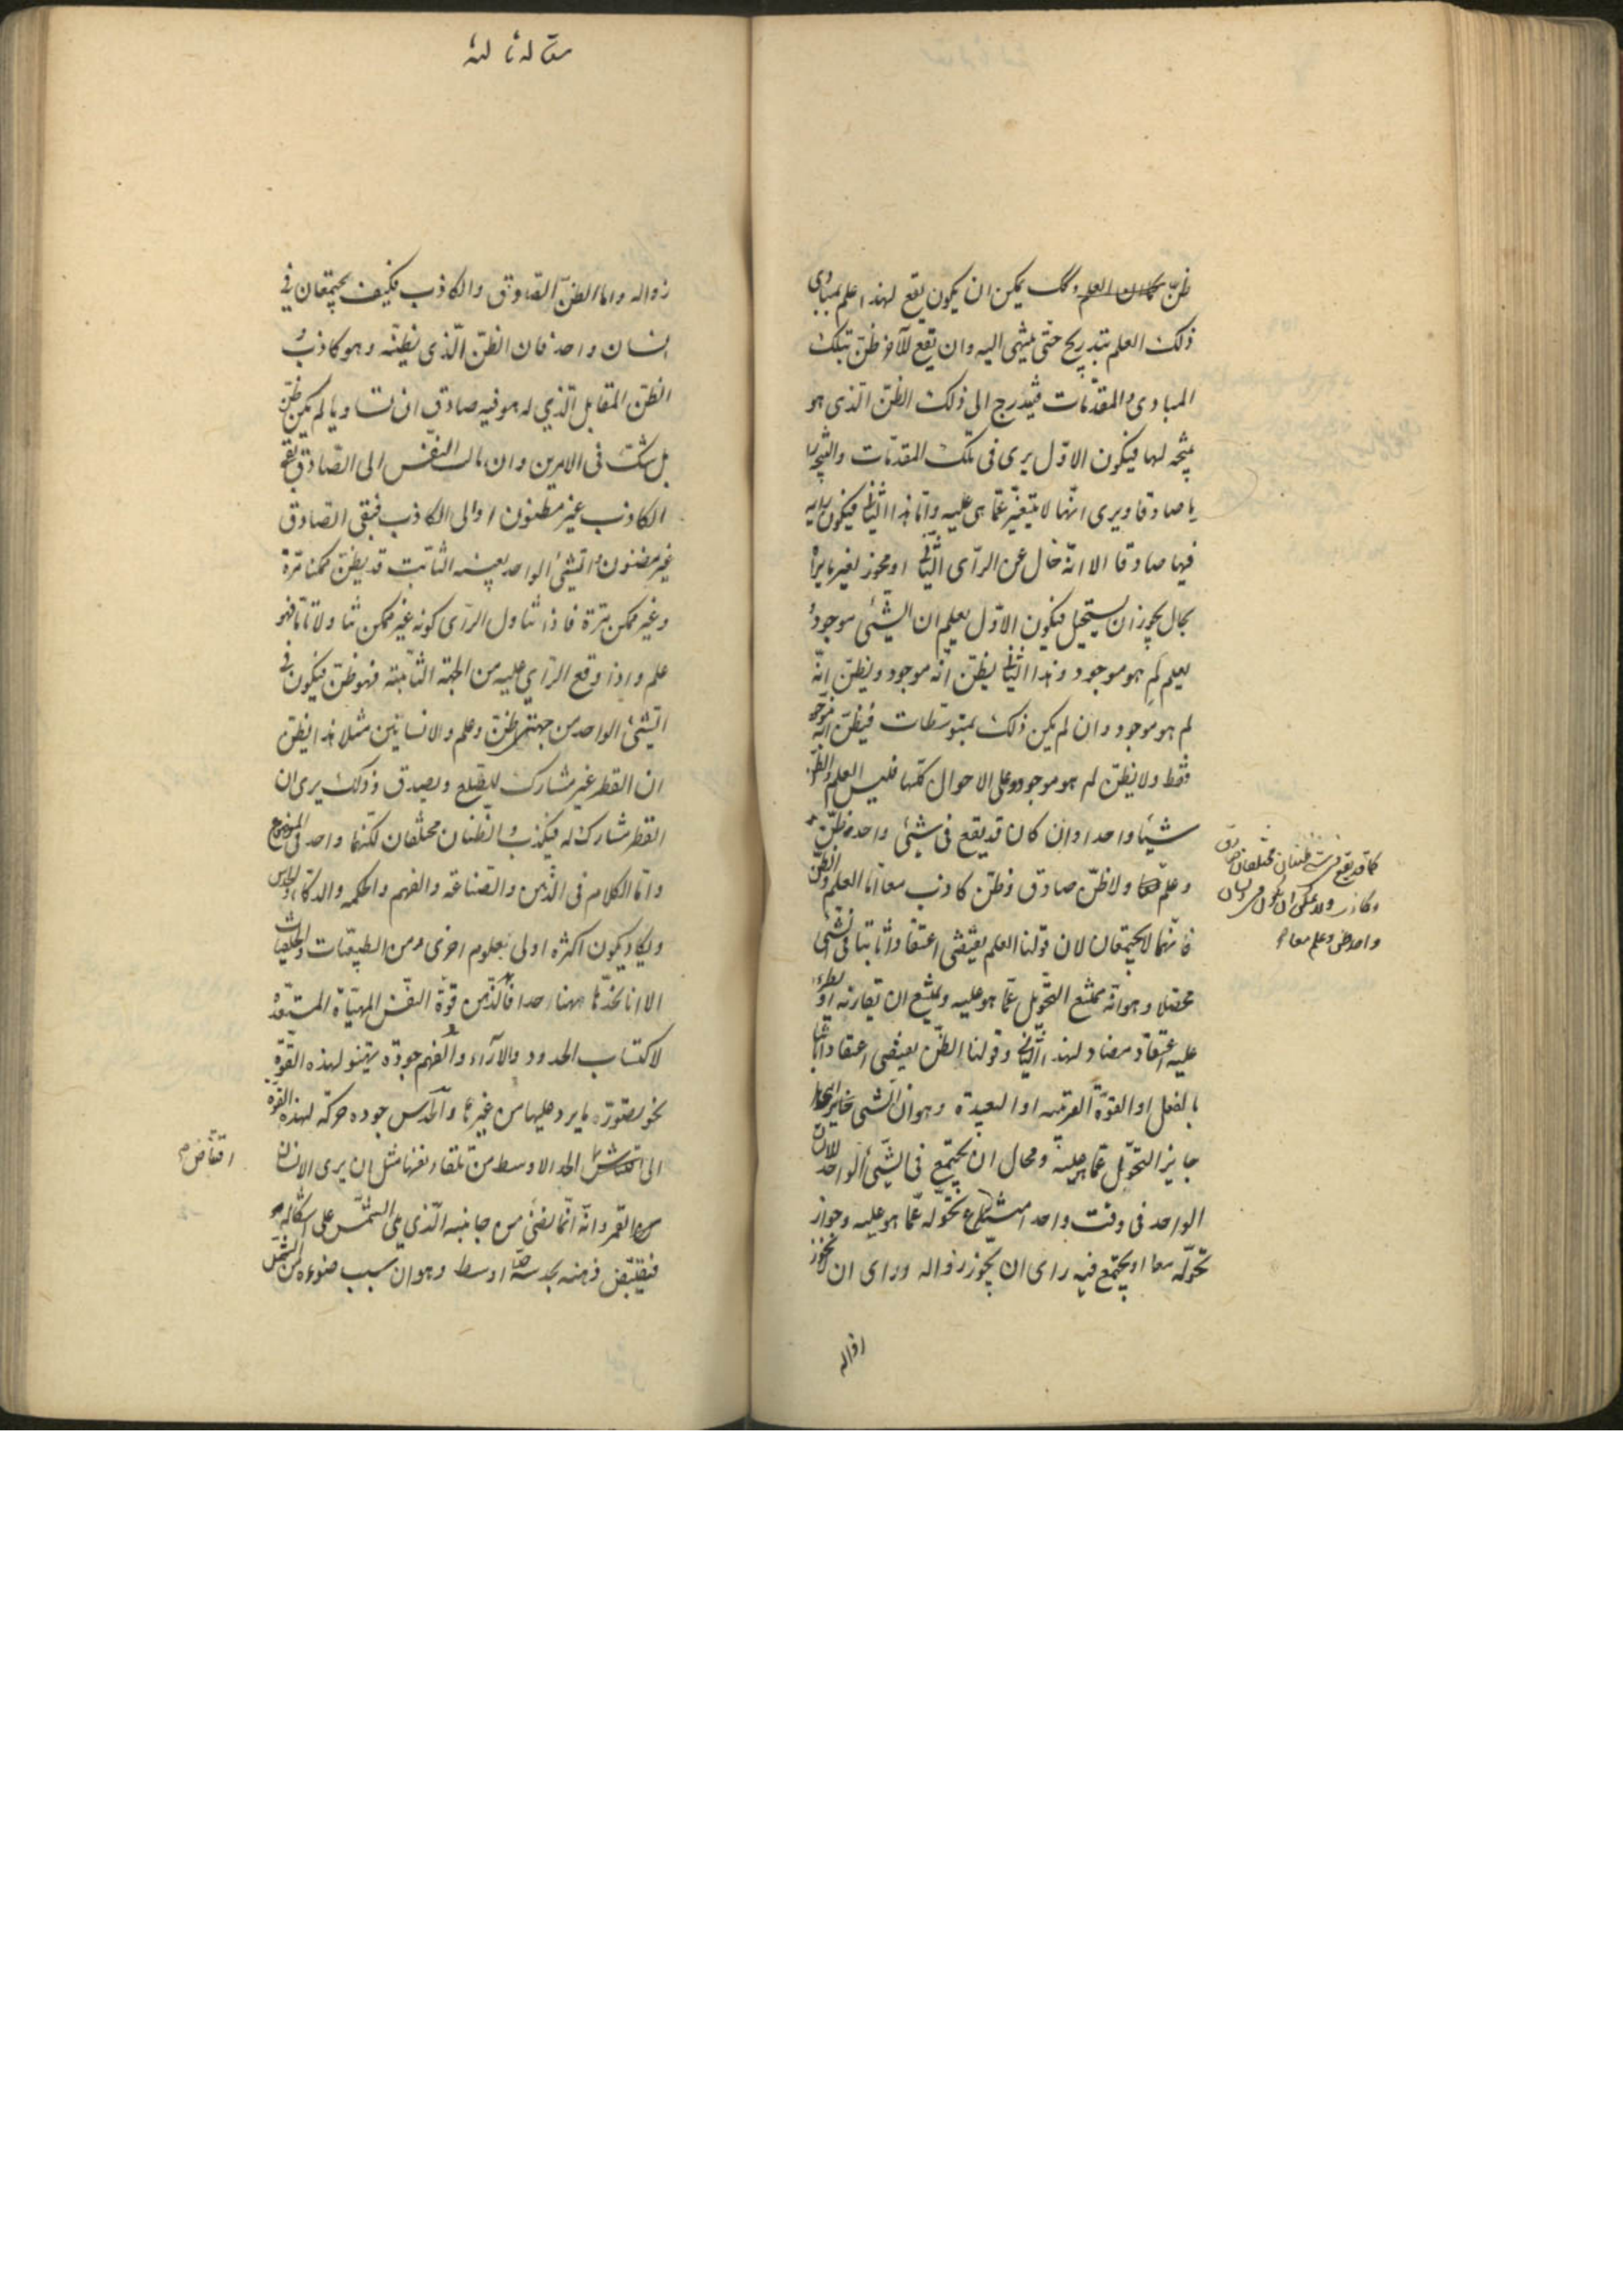 ظنّ وكك يمكن ان يكون يقع لهذا علم بمبادى
ذلك العلم بتدريج حتى ينتهى اليه وان يقع للآخر ظن بتلك
المبادى والمقدمات فيتدرج الى ذلك الظن الذى هو
نتيجة لها فيكون الاول يرى فى تلك المقدمات والنتيجة
يا صادقا ويرى انها لا تتغير عما هى عليه واما هذا الثانى فيكون
فيها صادقا الا انه خال عن الرأى الثانى او مجوز لغير ما يراه
بحال يجوز ان يستحيل فيكون الاول يعلم ان الشئ موجود و
يعلم لم هو موجود وهذا الثانى يظن انه موجود ويظن انه
لم هو موجود وان لم يكن ذلك بمتوسطات فيظن انه موجود
فقط ولا يظن لم هو موجود وعلى الاحوال كلها فليس العلم والظن
شيئا واحدا وان كان قد يقع فى شئ واحد ظن
وعلم ولا ظن صادق وظن كاذب معا اما العلم والظن
فانهما لا يجتمعان لان قولنا العلم يقتضى اعتقادا ثابتا فى الشئ
محصلا وهو انه ممتنع التحول عما هو عليه ويمتنع ان يقارنه او يطرء
عليه اعتقاد مضاد لهذا الثانى وقولنا الظن يقتضى اعتقادا ثانيا
بالفعل او القوة القريبة او البعيدة وهو ان الشئ
جايز التحول عما هو عليه ومحال ان يجتمع فى الشئ الواحد للانسان
الواحد فى وقت واحد امتناع تحوله عما هو عليه وجواز
تحوله معا او يجتمع فيه راى ان يجوز زواله وراى ان لا يجوز
زواله
كما قد يقع فى شئ ظنان مختلفان صادق
وكاذب ولا يمكن ان يكون فى انسان
واحد ظن وعلم معا
مقالة ثالثة
زواله واما الظن الصادق والكاذب فكيف يجتمعان فى
انسان واحد فان الظن الذى يظنه وهو كاذب و
الظن المقابل الذي له هو فيه صادق ان تساويا لم يكن ظن
بل شك فى الامرين وان مالت النفس الى الصادق بقى
الكاذب غير مظنون او الى الكاذب فبقى الصادق
غير مظنون والشئ الواحد بعينه الثابت قد يظن ممكنا مرة
وغير ممكن مرة فاذا تناول الرأى كونه غير ممكن تناولا ثابتا فهو
علم واذا وقع الرأي عليه من الجهة الثانية فهو ظن فيكون فى
الشئ الواحد من جهتين ظن وعلم ولانسانين مثلا هذا يظن
ان القطر غير مشارك للضلع ويصدق وذلك يرى ان
القطر مشارك له فيكذب والظنان مختلفان لكنهما واحد فى الموضوع
واما الكلام فى الذهن والصناعة والفهم والحكمه والذكاء والحدس
ويكاد يكون اكثره اولى بعلوم اخرى من الطبيعيات والخلقيات
الا انا نحدها ههنا حدا فالذهن قوة النفس المهيأة المستعدة
لاكتساب الحدود والآراء والفهم جودة تهيئو لهذه القوة
نحو تصور ما يرد عليها من غيرها والحدس جوده حركة لهذه القوة
الى الحد الاوسط من تلقاء نفسها مثل ان يرى الانسان
القمر وانه انما يضئ من جانبه الذي يلى الشمس على اشكاله
فيقتنص ذهنه بحدسه حدا اوسط وهو ان سبب ضوءه من الشمس
اقتناص